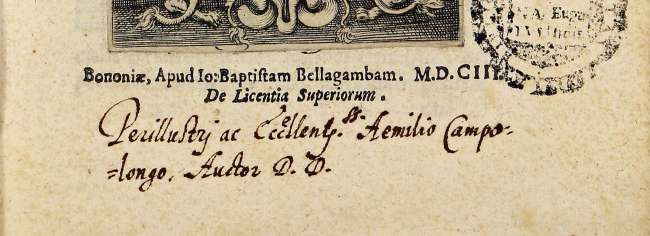 Bononiæ, Apud Io: Baptistam Bellagambam. M.D.CIII.
De Licentia Superiorum.
Perillustri ac Eccellentiss. Aemilio Campo-
=longo. Auctor D. D.